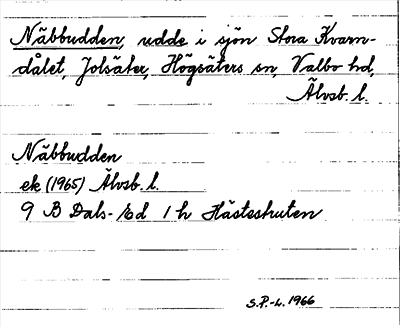 Näbbudden, udde i sjön Stora Kvarn-
dålet, Jolsäter, Högsäters sn, Valbo hd,
Älvsb. l.
Näbbudden
ek (1965) Älvsb. l.
9 B Dals-Ed 1 h Hästeskuten
S.P.-L. 1966